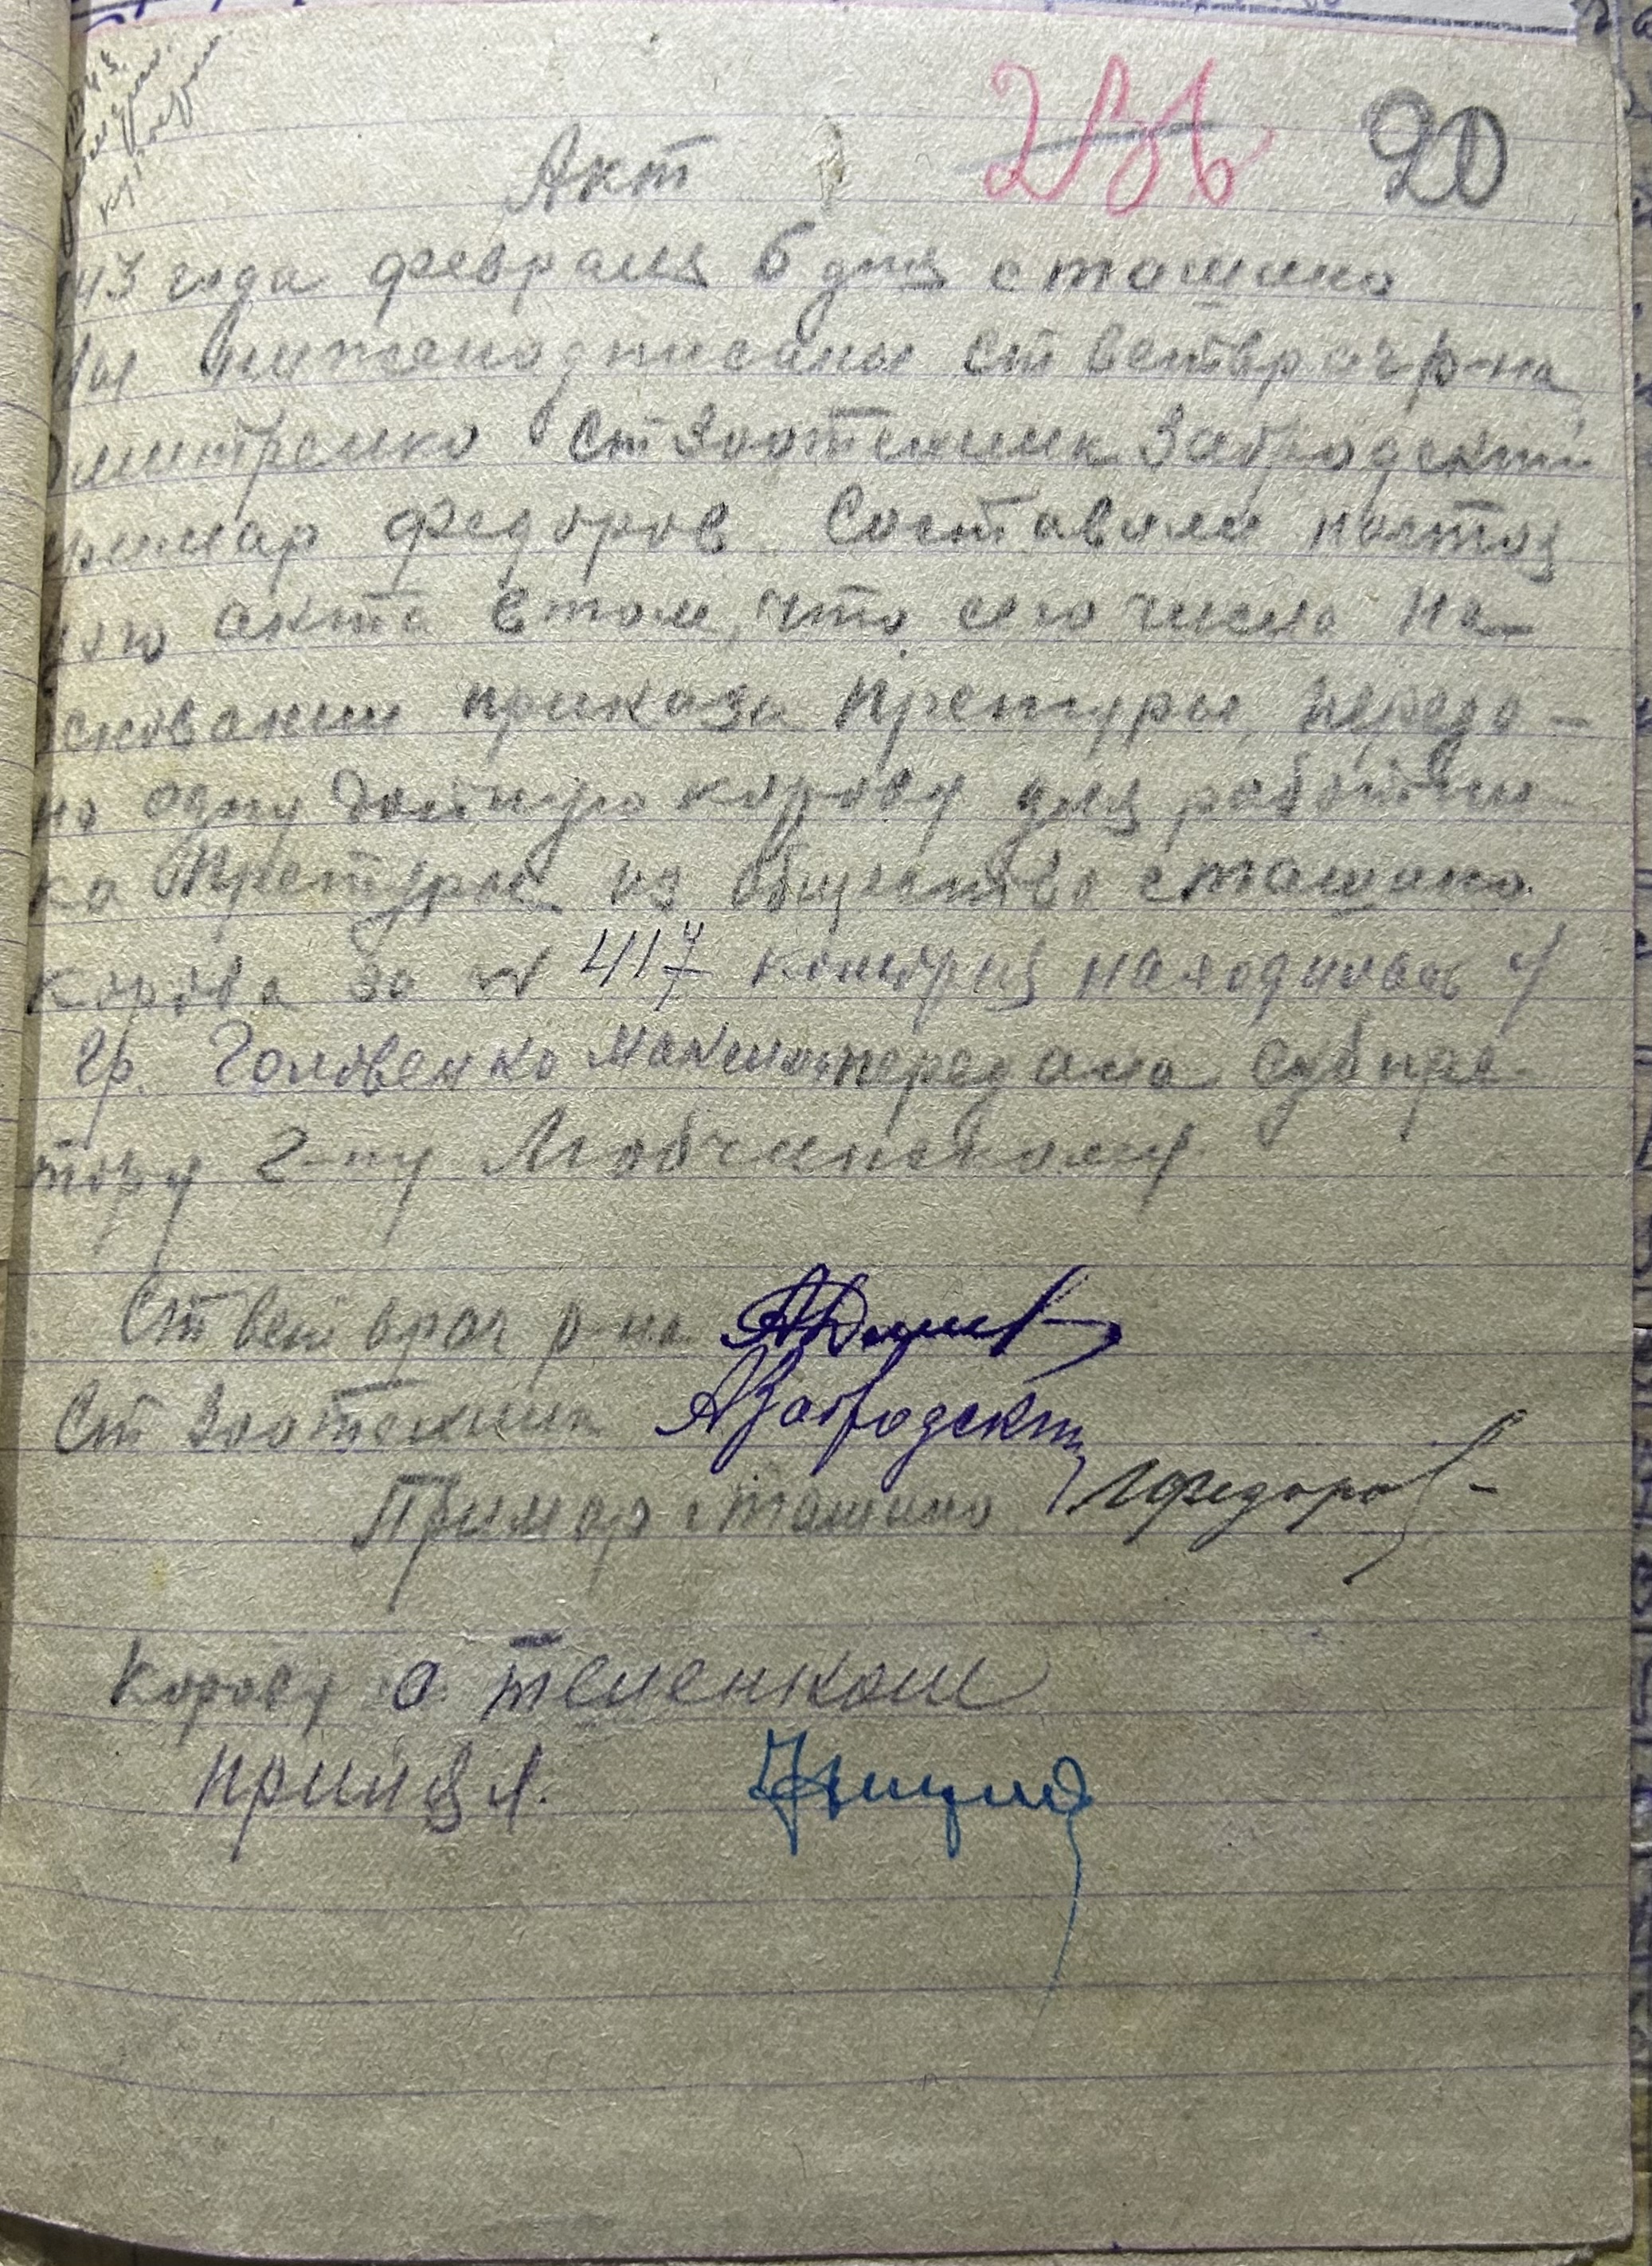 236 20
Акт
43 года февраля 6 дня с ташино
Мы нижеподписаны ст ветврач р-на
Дмитренко ст Зоотехник Забродский
примар Федоров. Составили настоя
щою акта в том, что сего числа на-
основании приказа Претуры, переда-
но одну дойную корову для работни-
ка Претуры из общество с ташино.
корова за № 417 которая находилась у
гр. Головенко Максим передана субпре-
тору 2-ну Мобчинскому
Ст вет врач р-на
Ст Зоотехник АЗабродский
Примар с ташино Федоров
Корову с теленком
принял.